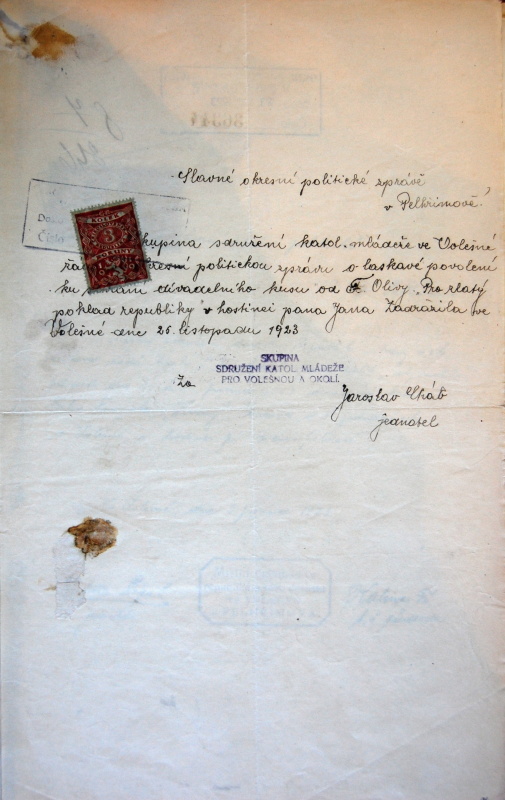 Slavné okresní politické zprávě
v Pelhřimově!
Došlo
Číslo
KOLEK
3
KORUNY
kupina sdružení katol. mládeže ve Volešné
žá okresní politickou zprávu o laskavé povolení
ku divadelního kusu od F. Olivy „Pro zlatý
poklad republiky" v hostinci pana Jana Zadražila ve
Volešné dne 25. listopadu 1923
SKUPINA
SDRUŽENÍ KATOL. MLÁDEŽE
PRO VOLEŠNOU A OKOLÍ.
Za
Jaroslav
jednatel